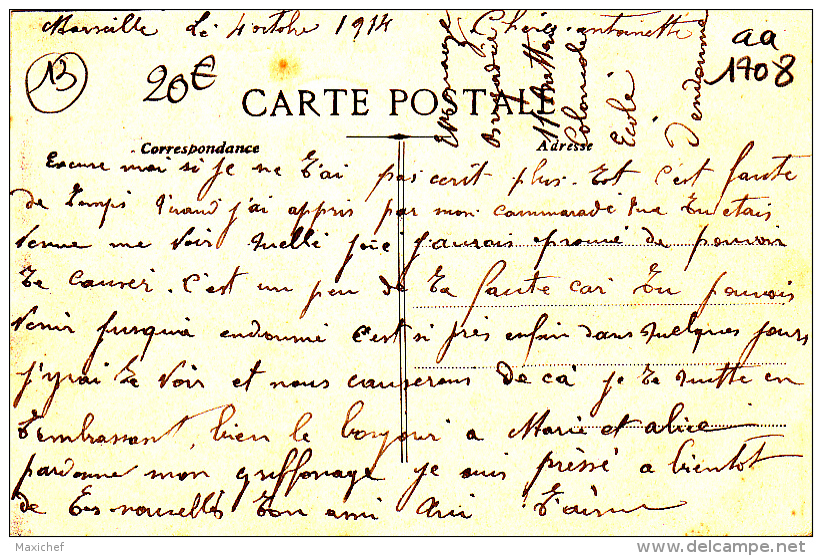 Marseille Le 4 octobre 1914
Chère antoinette
13
20€
aa
1708
CARTE POSTALE
Correspondance
Adresse
Ecole
Coloniale
d'endoumé
Excuse moi si je ne t'ai pas ecrit plus tot c'est faute
de temps quand j'ai appris par mon cammarade que tu etais
venue me voir quelle joie j'aurais eprouvé de pouvoir
te causer. C'est un peu de ta faute car tu pouvais
venir jusqu'a endoumé c'est si près enfin dans quelques jours
j'yrai te voir et nous causerons de ca je te quitte en
t'embrassant, bien le bonjour a Marie et alice
pardonne mon griffonage je suis préssé a bientot
de tes nouvelles ton ami qui t'aime
Maxichef
www.delcampe.net